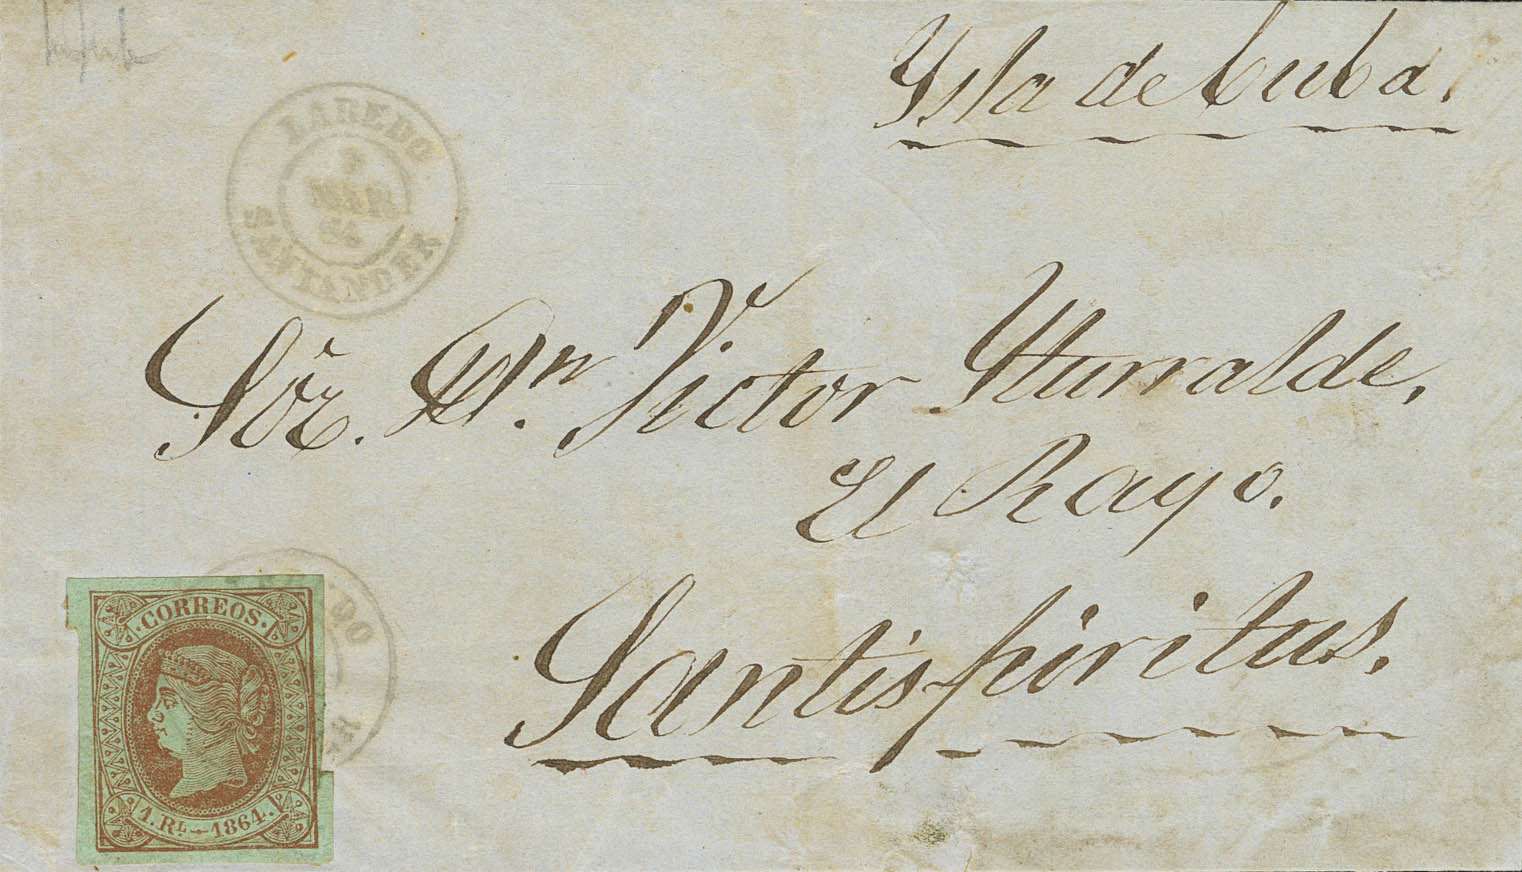 Ysla de Cuba.
LAREDO
MAR
64
SANTANDER
Sör. Dn. Victor Yturralde,
El Rayo.
Santispiritus.
DO
ER
CORREOS.
1. RL - 1864.